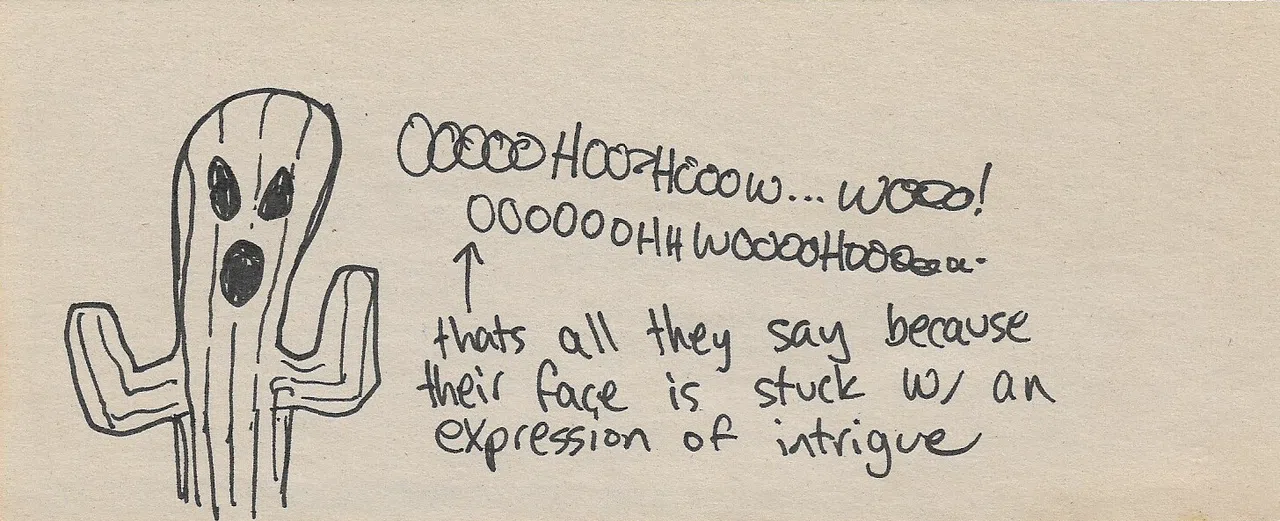 OOOOOO HOO?HOOOW... WOOO!
OOOOOOOHH WOOOOHOOOooooo..
thats all they say because
their face is stuck w/ an
expression of intrigue